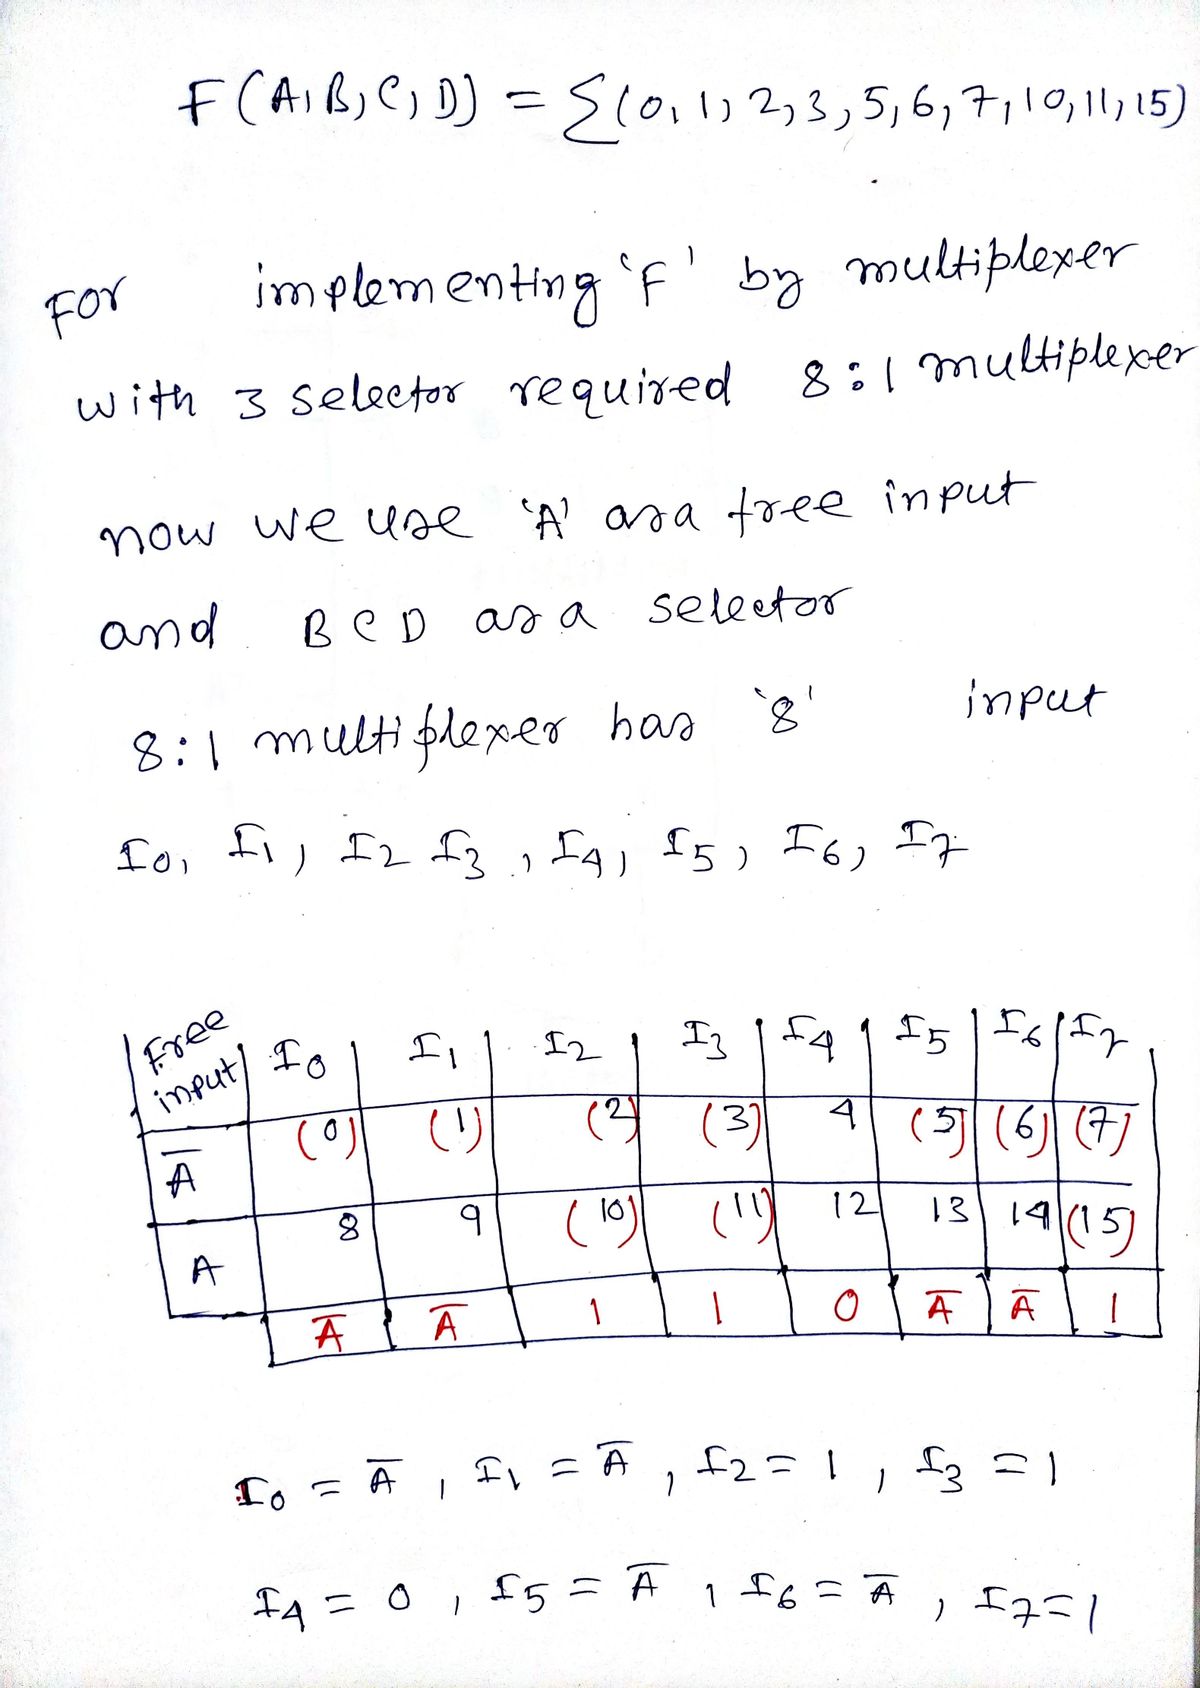 F(A, B, C, D) = Σ(0, 1, 2, 3, 5, 6, 7, 10, 11, 15)
For implementing 'F' by multiplexer
with 3 selector required 8:1 multiplexer
now we use 'A' as a free input
and BCD as a selector
8:1 multiplexer has '8' input
I0, I1, I2 I3, I4, I5, I6, I7
Free input I0 I1 I2 I3 I4 I5 I6 I7
A̅ (0) (1) (2) (3) 4 (5) (6) (7)
A 8 9 (10) (11) 12 13 14 (15)
A̅ A̅ 1 1 0 A̅ A̅ 1
I0 = A̅, I1 = A̅, I2 = 1, I3 = 1
I4 = 0, I5 = A̅, I6 = A̅, I7 = 1